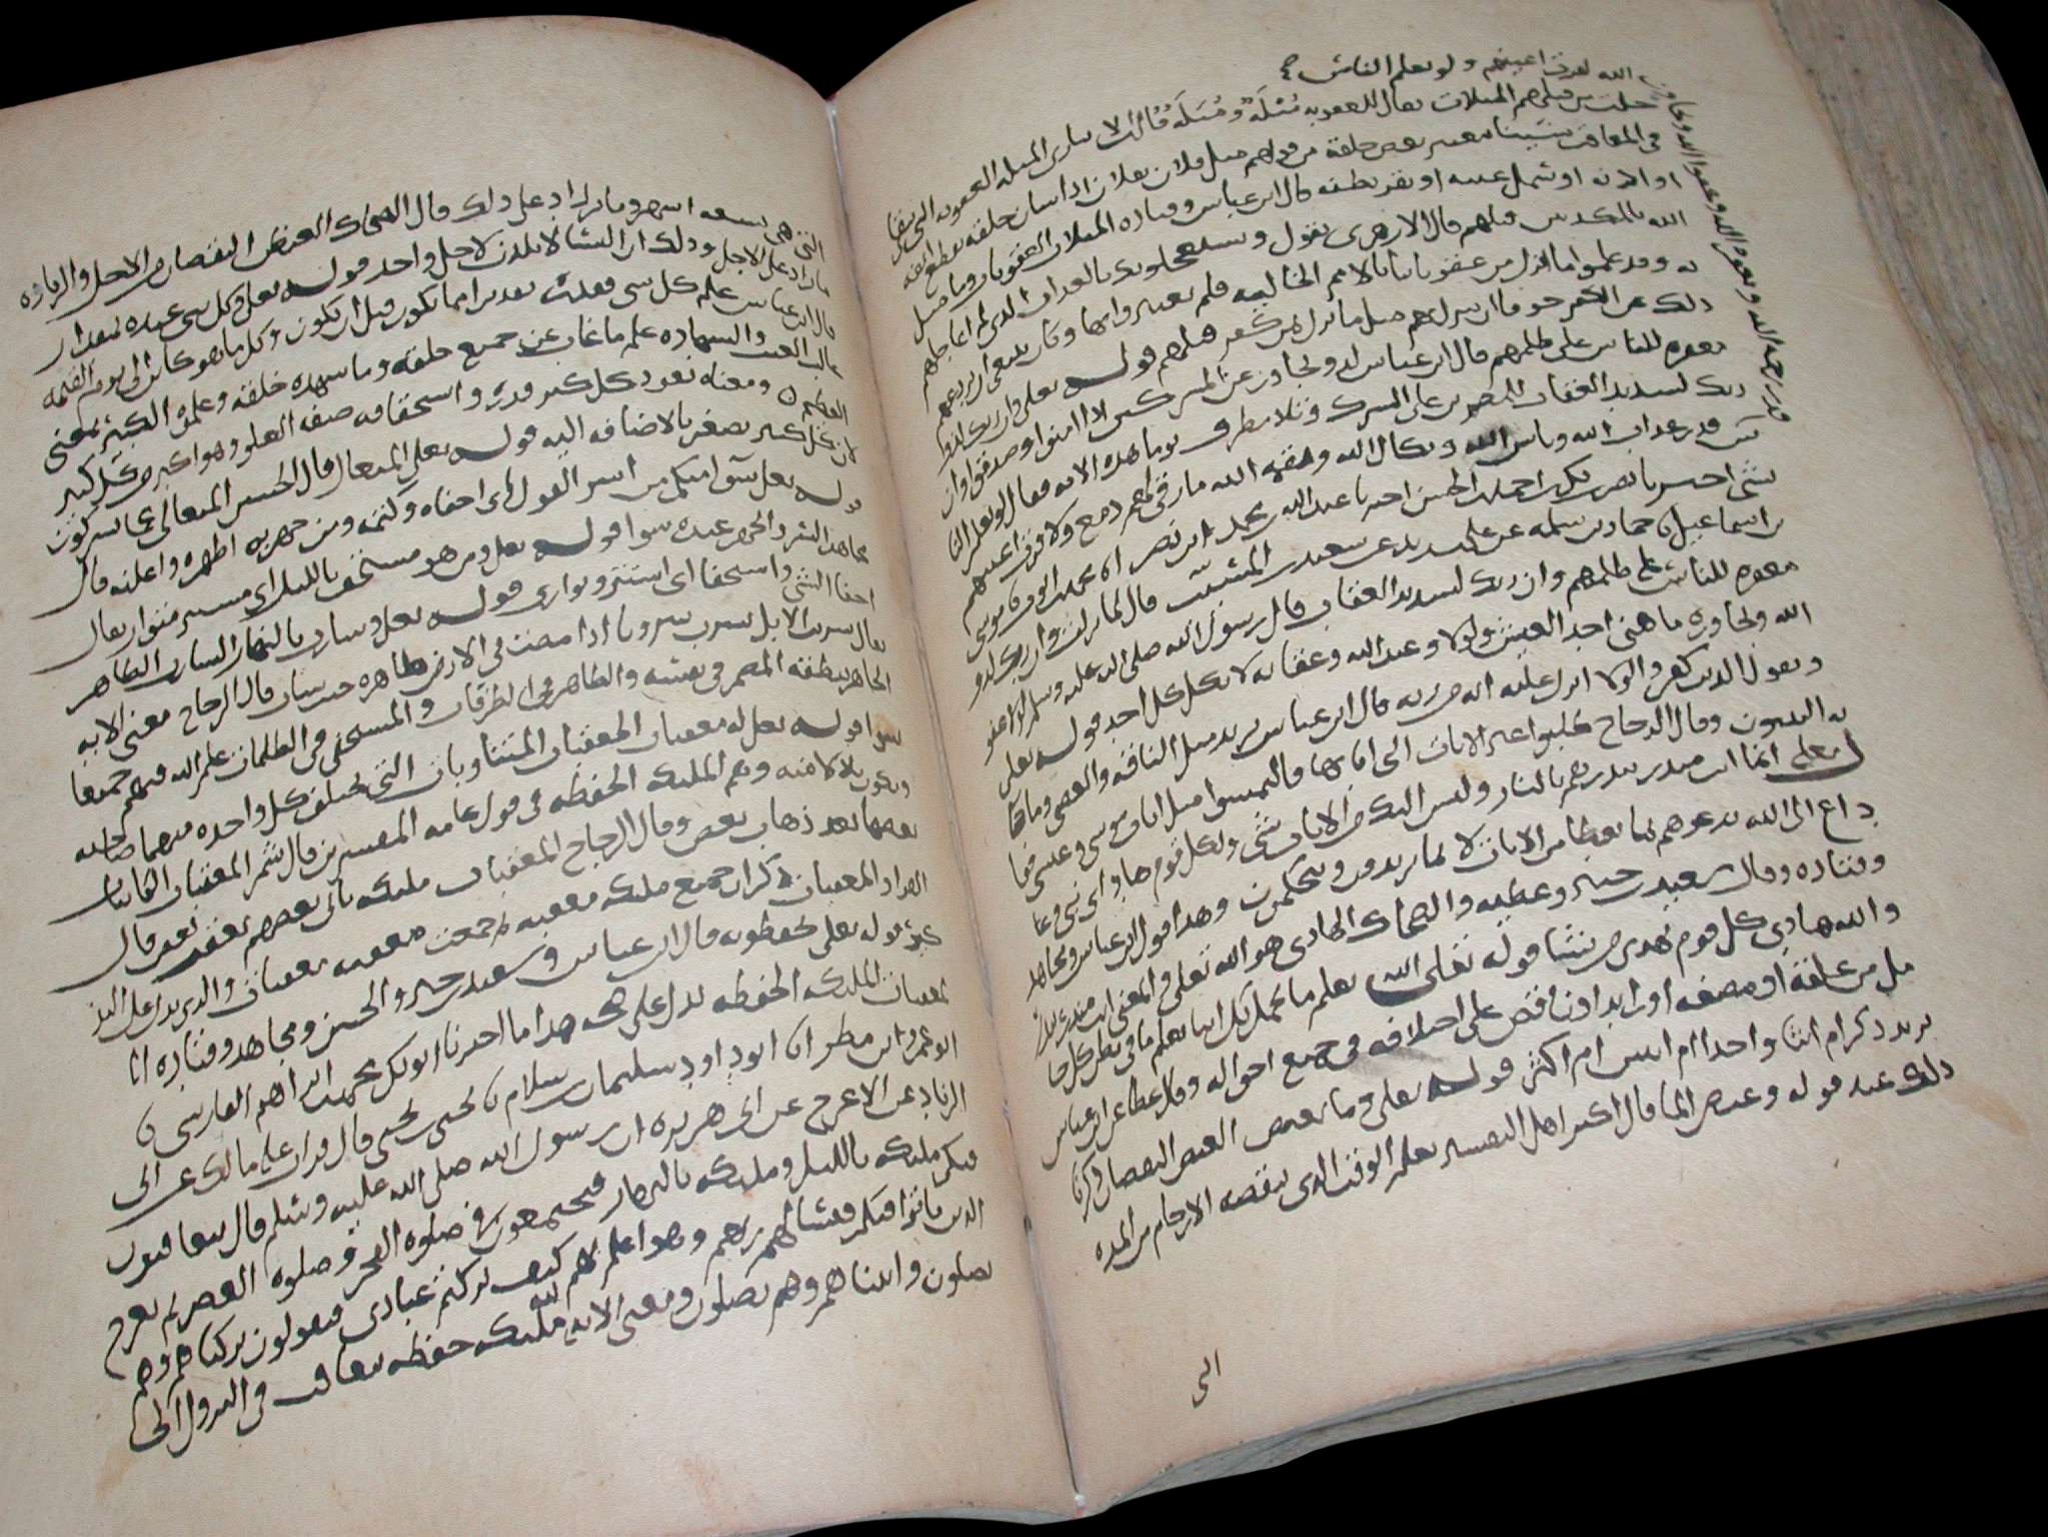 الله لعرف اعينهم ولو يعلم الناس
قدر رحمة الله وعفو الله
خلت من قبلهم المثلات يقال للعقوبة مُثْلَة ومُثُلَة قال ابن الانباري المثلة العقوبة التي تبقى
في المعاقب شينا بتغيير بعض خلقه من قولهم مثل فلان بفلان اذا شان خلقه بقطع انفه
او اذنه او سمل عينه او بقر بطنه قال ابن عباس وقتاده المثلات العقوبات وما مثل
الله بالمكذبين قبلهم قال الازهري يقول ويستعجلونك بالعذاب الذي لم اعاجلهم
به وقد علموا ما نزل من عقوباتنا بالامم الخاليه فلم يعتبروا بها وكان ينبغي ان يردعهم
ذلك عن الكفر خوفا ان ينزل بهم مثل ما نزل بمن كفر قبلهم قوله تعلى وان ربك لذو
مغفره للناس على ظلمهم قال ابن عباس لذو تجاوز عن المشركين اذا امنوا وصدقوا وان
ربك لشديد العقاب للمصرين على الشرك وتلا مطرف يوما هذه الايه فقال لو يعلم الناس
قدر عذاب الله وباس الله ونكال الله ونقمة الله ما رقى لهم دمع ولا قرت اعينهم
بشي اخبرنا نصر بن بكر بن احمد بن الحسين اخبرنا عبد الله بن محمد ابن نصر انا محمد بن ايوب نا موسى
بن اسماعيل نا حماد بن سلمه عن علي بن زيد عن سعيد بن المسيب قال لما نزلت وان ربك لذو
مغفره للناس على ظلمهم وان ربك لشديد العقاب قال رسول الله صلى الله عليه وسلم لولا عفو
الله وتجاوزه ما هنئ احد العيش ولولا وعيد الله وعقابه لاتكل كل احد قوله تعلى
ويقول الذين كفروا لولا انزل عليه ايه من ربه قال ابن عباس يريد مثل الناقه والعصى وما جا
به النبيون وقال الزجاج طلبوا غير الايات التي اتى بها فالتمسوا مثل ايات موسى وعيسى فقا
ل تعلى انما انت منذر تنذرهم بالنار وليس اليك من الايات شي ولكل قوم هاد اي نبي وداع
داع الى الله يدعوهم بما يعطا من الايات لا بما يريدون ويتحكمون وهذا قول ابن عباس ومجاهد
وقتاده وقال سعيد بن جبير وعطيه والضحاك الهادي هو الله تعلى والمعنى انت منذر تنذر
والله هادي كل قوم يهدي من يشا قوله تعلى الله يعلم ما تحمل كل انثى يعلم ما في بطن كل حا
مل من علقة او مضغه او زايد او ناقص على اختلافه في جميع احواله وقال عطا عن ابن عباس
يريد ذكرا ام انثا واحدا ام اثنين ام اكثر قوله تعلى وما تغيض الغيض النقصان ذكرنا
ذلك عند قوله وغيض الما قال اكثر اهل التفسير يعلم الوقت الذي تنقصه الارحام من المده
الى
التي هي تسعه اشهر وما تزداد على ذلك قال الضحاك الغيض النقصان من الاجل والزياده
ما زاد على الاجل وذلك ان النسا لا يلدن لاجل واحد قوله تعلى وكل شي عنده بمقدار
قال ابن عباس علم كل شي فقدره تقديرا ما يكون قبل ان يكون وكل ما هو كاين الى يوم القيمه
عالم الغيب والشهاده علم ما غاب عن جميع خلقه وما شهده خلقه وعلموه الكبير بمعنى
العظيم ومعناه يعود كل كبير قدره واستحقاقه صفه العلو وهو اكبر من كل كبير
لان كل كبير يصغر بالاضافه اليه قوله تعلى المتعال قال الحسن المتعالي عما يشركون
قوله تعلى سوا منكم من اسر القول اي اخفاه وكتمه ومن جهر به اظهره واعلنه قال
مجاهد السر والجهر عنده سوا قوله تعلى ومن هو مستخف بالليل اي مستتر متوار يقال
اخفا الشي واستخفا اي استتر وتوارى قوله تعلى وسارب بالنهار السارب الظاهر
يقال سربت الابل تسرب سروبا اذا مضت في الارض ظاهره حيث شات قال الزجاج معنى الايه
الجاهر بنطقه المضمر في نفسه والظاهر في الطرقات والمستخفي في الظلمات علم الله فيهم جميعا
سوا قوله تعلى له معقبات المعقبات المتناوبات التي يخلف كل واحده منهما صاحبه
ويكون بدلا منه وهم الملئكه الحفظه في قول عامه المفسرين قال شمر المعقبات اللاتي
بعضها بعد ذهاب بعض وقال الزجاج المعقبات ملئكه ياتي بعضهم بعقب بعض قال
الفرا المعقبات ذكران جمع ملئكه معقبه ثم جمعت معقبه معقبات والذي يدل على التذ
كير قوله تعلى يحفظونه قال ابن عباس وسعيد بن جبير والحسن ومجاهد وقتاده انا
لمعقبات الملئكه الحفظه يدل على صحه هذا ما اخبرنا ابو بكر محمد بن ابراهيم الفارسي نا
ابو عمرو ابن مطر انا ابو داود سليمان بن سلام نا يحيى بن يحيى قال قرات على مالك عن ابي
الزناد عن الاعرج عن ابي هريره ان رسول الله صلى الله عليه وسلم قال يتعاقبون
فيكم ملئكه بالليل وملئكه بالنهار فيجتمعون في صلوه الفجر وصلوه العصر ثم يعرج
الذين باتوا فيكم فيسالهم ربهم وهو اعلم بهم كيف تركتم عبادي فيقولون تركناهم وهم
يصلون واتيناهم وهم يصلون ومعنى الايه لله ملئكه حفظه تتعاقب في النزول الى